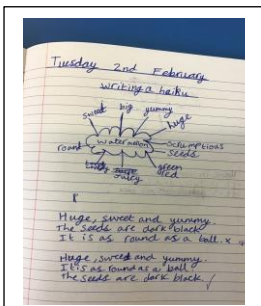 Tuesday 2nd February
writing a haiku
sweet big yummy
huge
round watermelon
scrumptious
seeds
green
red
juicy
Huge, sweet and yummy.
The seeds are dark black
It is as round as a ball. x
Huge, sweet and yummy.
It is as round as a ball
The seeds are dark black. /